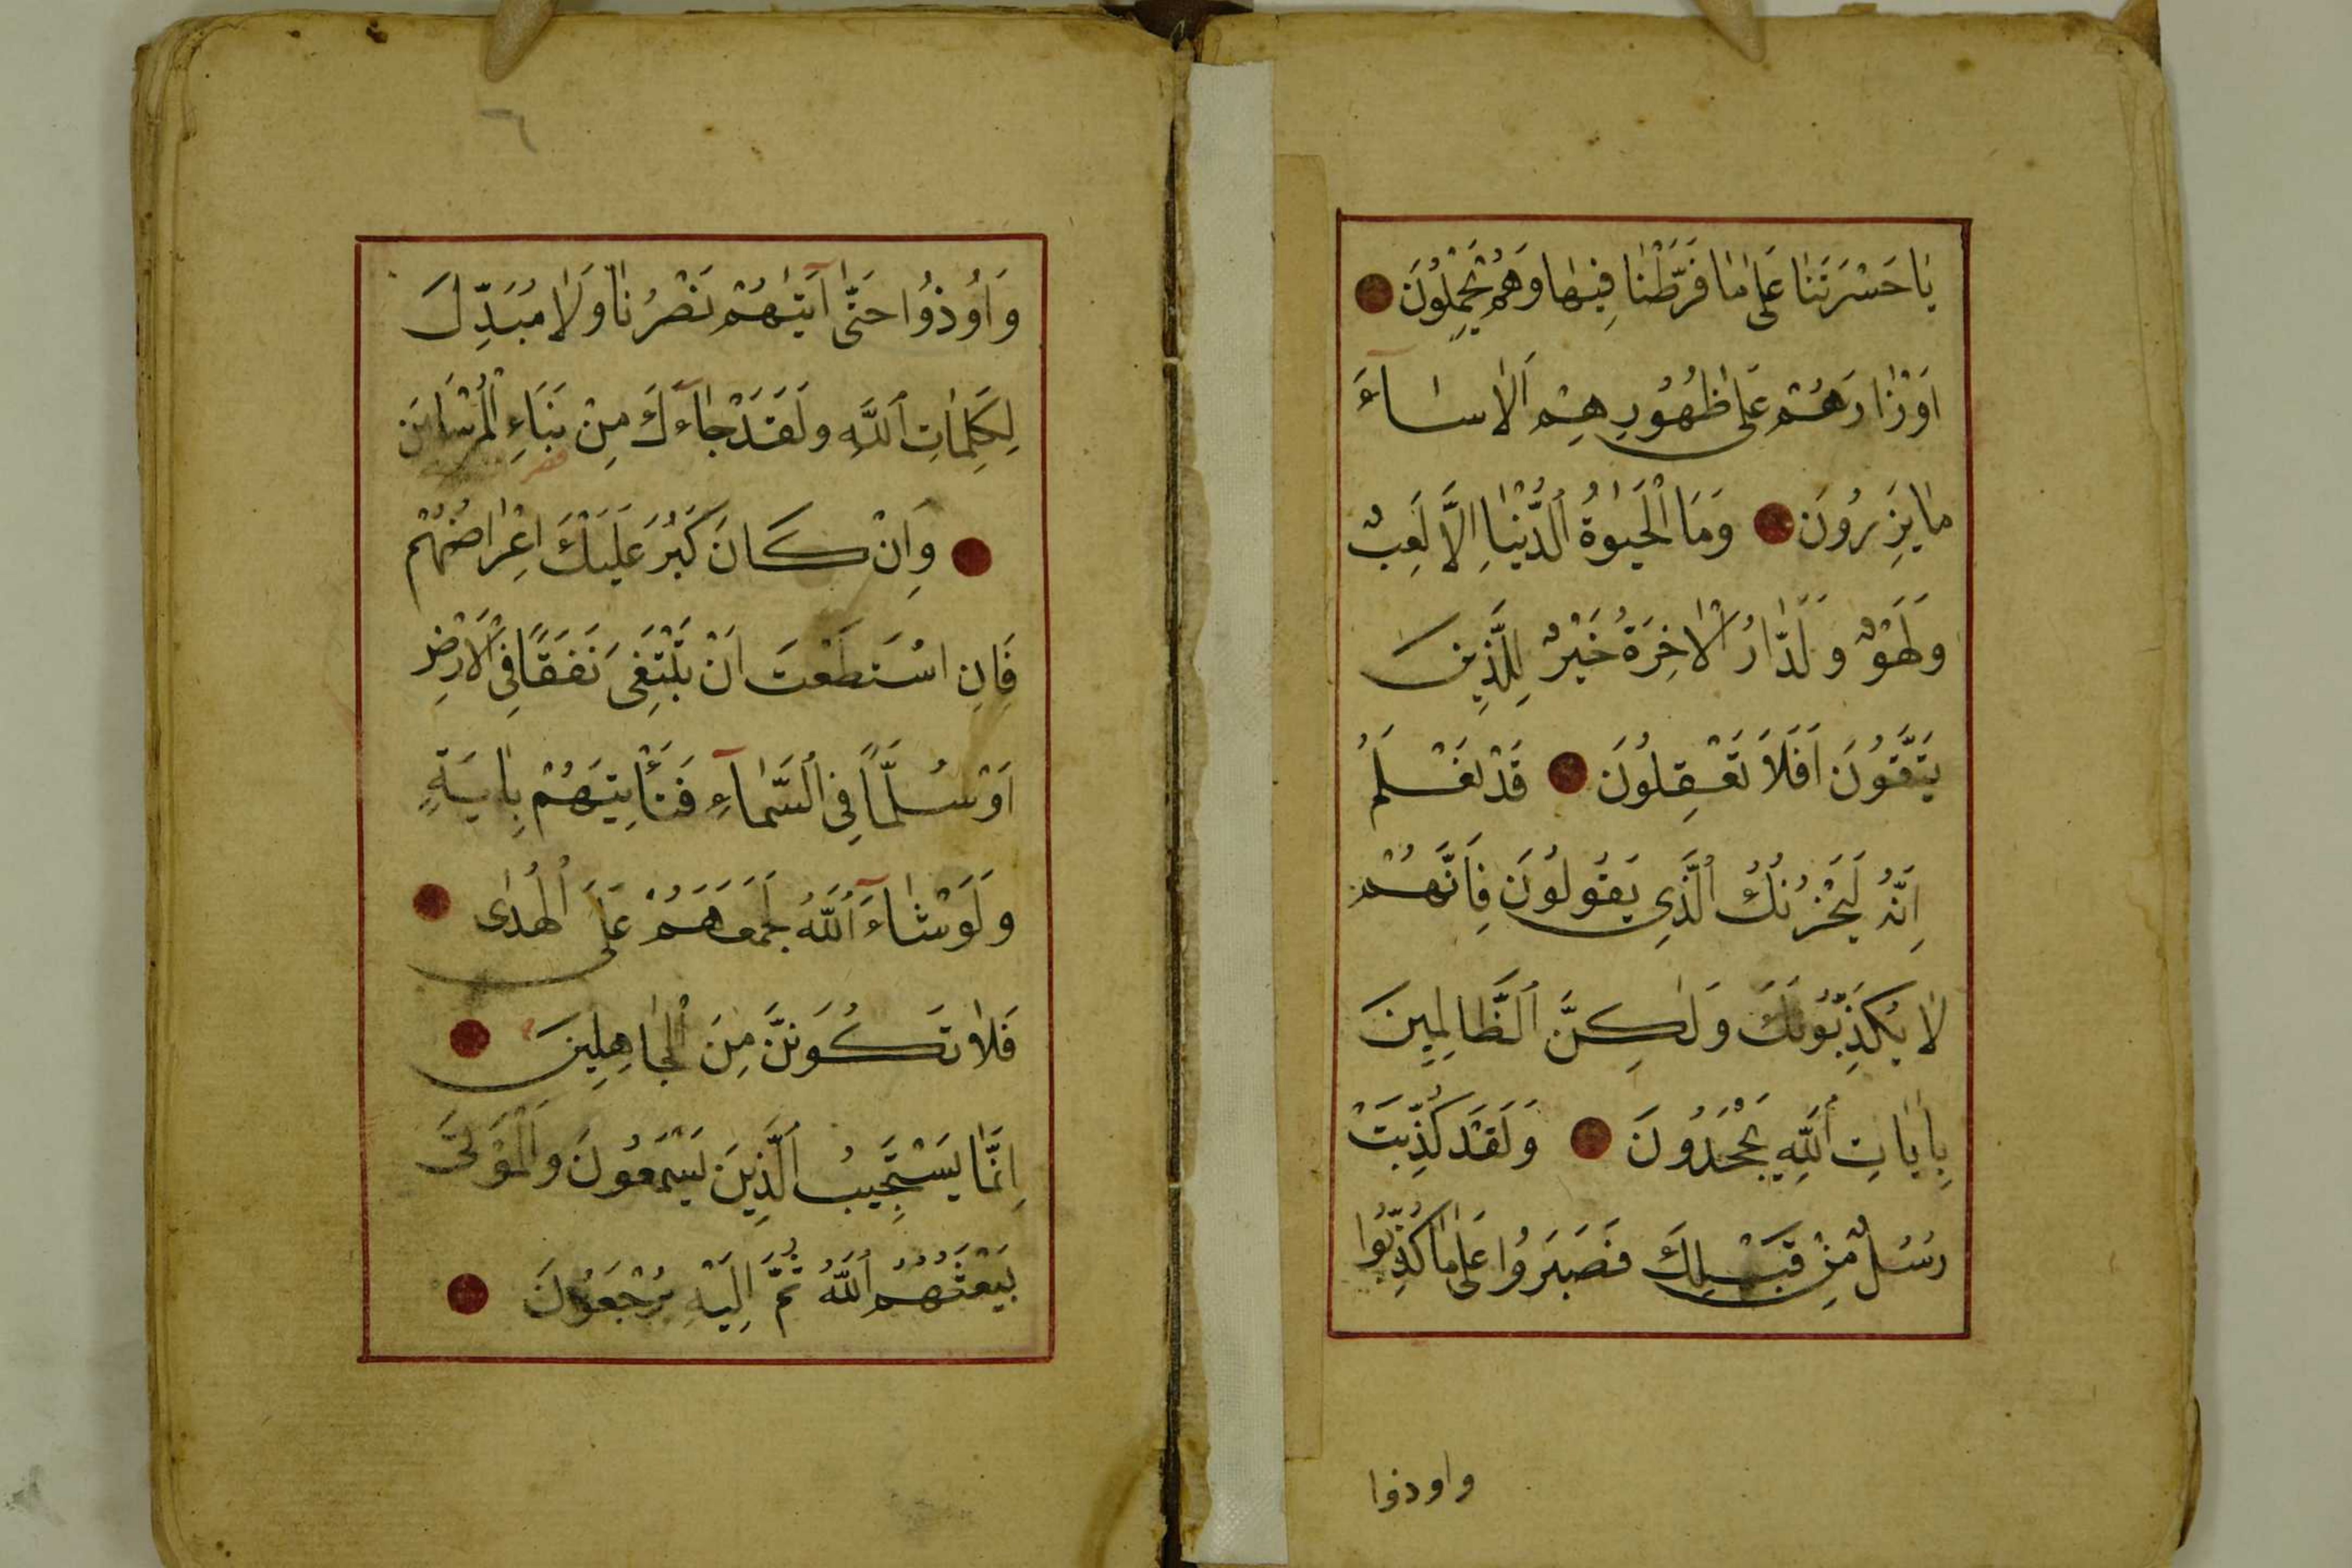 يَاحَسْرَتَنَا عَلَى مَا فَرَّطْنَا فِيهَا وَهُمْ يَحْمِلُونَ
اَوْزَارَهُمْ عَلَى ظُهُورِهِمْ اَلَا سَاءَ
مَا يَزِرُونَ وَمَا الْحَيٰوةُ الدُّنْيَا اِلَّا لَعِبٌ
وَلَهْوٌ وَلَلدَّارُ الْاٰخِرَةُ خَيْرٌ لِلَّذِينَ
يَتَّقُونَ اَفَلَا تَعْقِلُونَ قَدْ نَعْلَمُ
اِنَّهُ لَيَحْزُنُكَ الَّذِي يَقُولُونَ فَاِنَّهُمْ
لَا يُكَذِّبُونَكَ وَلٰكِنَّ الظَّالِمِينَ
بِاٰيَاتِ اللّٰهِ يَجْحَدُونَ وَلَقَدْ كُذِّبَتْ
رُسُلٌ مِنْ قَبْلِكَ فَصَبَرُوا عَلَى مَا كُذِّبُوا
واوذوا
٦
وَاُوذُوا حَتَّى اَتٰيهُمْ نَصْرُنَا وَلَا مُبَدِّلَ
لِكَلِمَاتِ اللّٰهِ وَلَقَدْ جَاءَكَ مِنْ نَبَاءِ الْمُرْسَلِينَ
وَاِنْ كَانَ كَبُرَ عَلَيْكَ اِعْرَاضُهُمْ
فَاِنِ اسْتَطَعْتَ اَنْ تَبْتَغِيَ نَفَقًا فِي الْاَرْضِ
اَوْ سُلَّمًا فِي السَّمَاءِ فَتَأْتِيَهُمْ بِاٰيَةٍ
وَلَوْ شَاءَ اللّٰهُ لَجَمَعَهُمْ عَلَى الْهُدٰى
فَلَا تَكُونَنَّ مِنَ الْجَاهِلِينَ
اِنَّمَا يَسْتَجِيبُ الَّذِينَ يَسْمَعُونَ وَالْمَوْتَى
يَبْعَثُهُمُ اللّٰهُ ثُمَّ اِلَيْهِ يُرْجَعُونَ